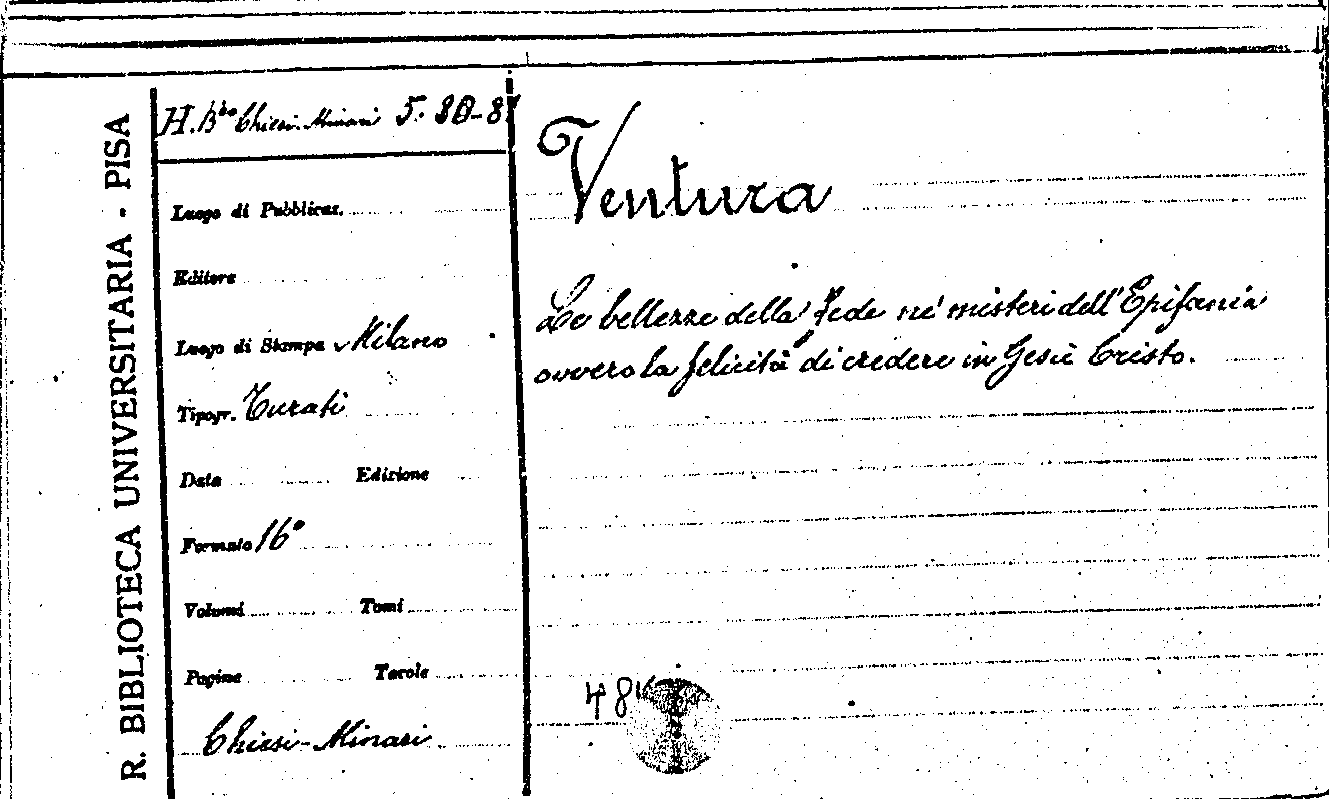 R. BIBLIOTECA UNIVERSITARIA - PISA
H. B.to Chiesi-Minari 5. 80-8
Luogo di Pubblicaz.
Editore
Luogo di Stampa Milano
Tipogr. Turati
Data Edizione
Formato 16°
Volumi Tomi
Pagine Tavole
Chiesi-Minari
Ventura
Le bellezze della Fede ne' misteri dell'Epifania
ovvero la felicità di credere in Gesù Cristo.
48